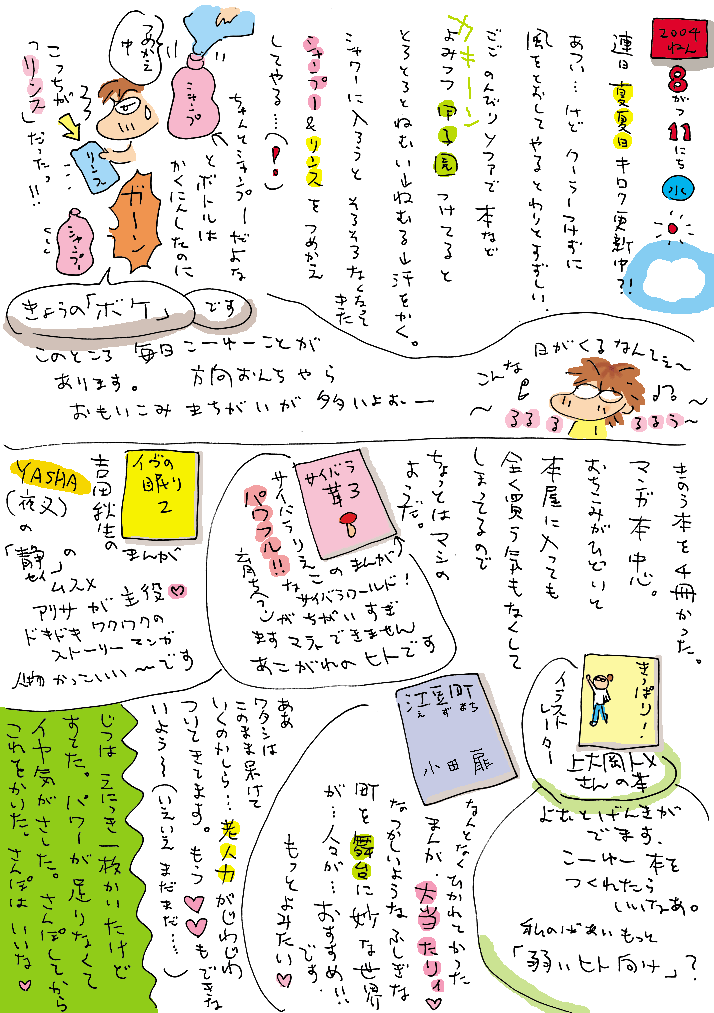 2004
ねん
8
がつ
11
にち
水
連日 真夏日 キロク更新中?!
あつい…けど クーラーつけずに
風をとおしてやるとわりとすずしい.
ごご のんびりソファで 本など
よみつつ 甲子園 つけてると
カキーン
とろとろとねむい山ねむる山汗をかく。
シャワーに入ろうと そろそろなくなってきた
シャンプー&リンス をつめかえ
してやる…(!)
ちゃんとシャンプーだよな
とボトルは
かくにんしたのに
シャンプ
つめかえ
中
リンス
こっちが
「リンス」だったっ!!
ガーン
シャンプー
くくく
きょうの「ボケ」
です
このところ 毎日 こーゆーことが
あります。 方向おんちやら
おもいこみ まちがいが 多いよぉー
こんな
日がくるなんてぇ〜
〜るるる
るるう〜
きのう本を4冊かった。
マンガ本 中心。
おちこみがひどいと
本屋に入っても
全く買う気もなくして
しまってるので
ちょっとは マシの
ようだ。
サイバラ
茸3
サイバラりえこ のまんが
パワフル!!な サイバラワールド!
育ちマンがちがいすぎ
ます マネできません
あこがれの ヒトです
イヴの
眠り
2
吉田秋生の まんが
YASHA
(夜叉)
の
「静」の
セイ
ムスメ
アリサ が 主役♡
ドキドキ ワクワクの
ストーリーマンガ
人物 かっこいい 〜です
きっぱり!
イラスト
レーター
上大岡トメ
さん の本
よむと げんきが
でます.
こーゆー 本を
つくれたら
いいなぁ。
私のばあい もっと
「弱いヒト向け」?
江豆町
えずまち
小田 扉
なんとなくひかれてかった
まんが. 大当たりィ♡
なつかしいような ふしぎな
町を 舞台に 妙な世界
が… 人々が… おすすめ!!
です
もっとよみたい♡
ああ
ワタシは
このまま呆けて
いくのかしら… 老人力がじわじわ
ついてきてます。もう♡♡もできな
いよう〜(いえいえ まだまだ…)
じつは えにっき一枚かいたけど
すてた。パワーが足りなくて
イヤ気がさした。さんぽしてから
これをかいた。さんぽは いいな♡